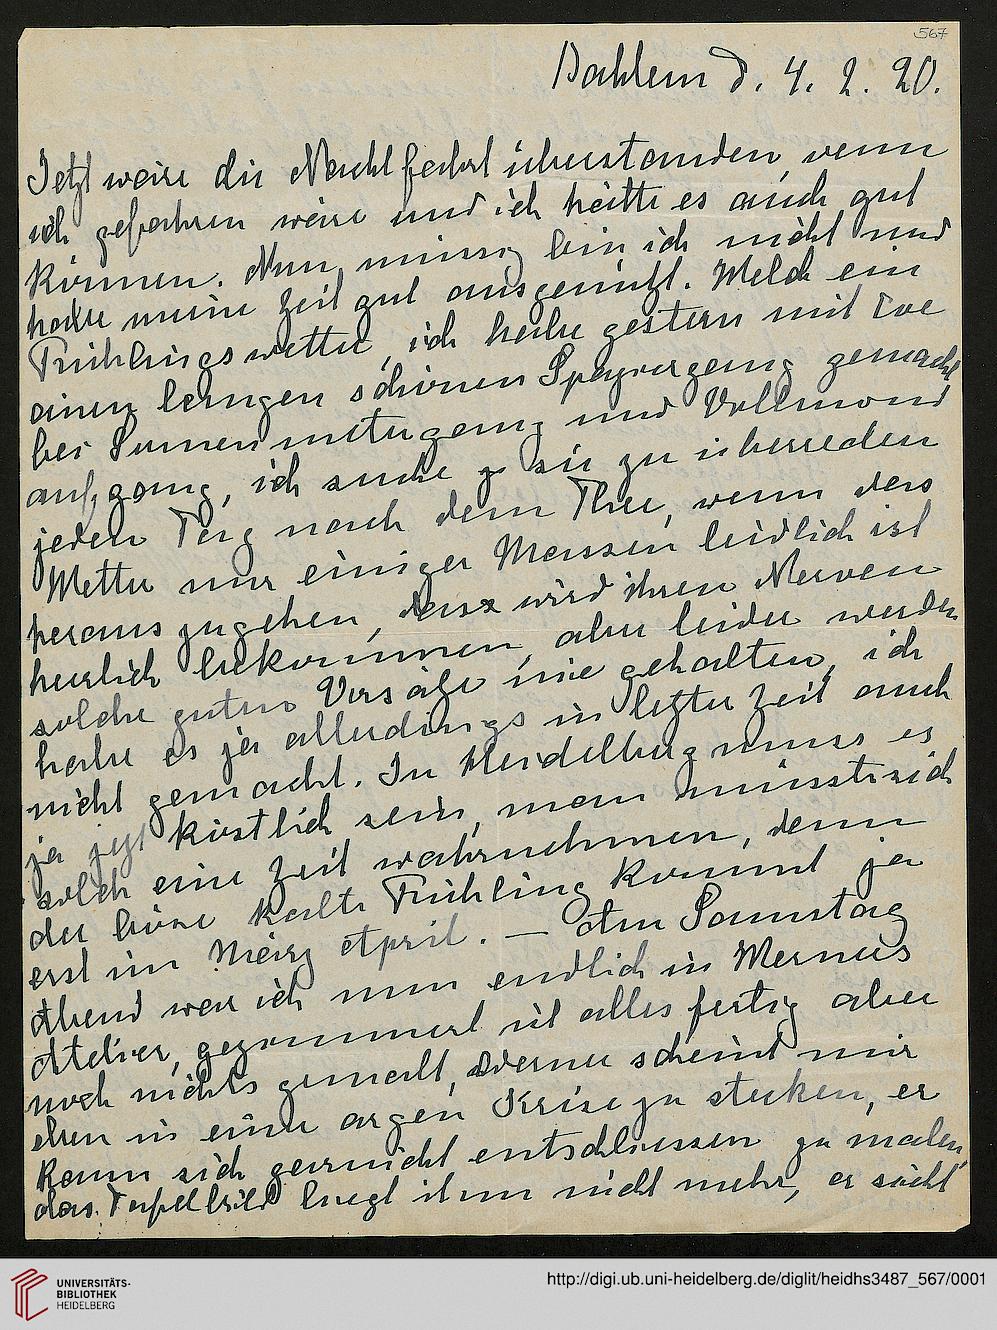 567
Dahlem d. 4. 2. 20.
Jetzt wäre die Nachtfahrt überstanden, wenn
ich gefahren wäre und ich hätte es auch gut
können. Nun, müssig bin ich nicht und
habe meine Zeit gut ausgenützt. Welch ein
Frühlingswetter, ich habe gestern mit Eve
einen langen schönen Spaziergang gemacht
bei Sonnenuntergang und Vollmond
aufgang, ich suche ja sie zu überreden
jeden Tag nach dem Thee, wenn das
Wetter nur einiger Massen leidlich ist
herauszugehen, das wird ihren Nerven
herrlich bekommen, aber leider werden
solche guten Vorsätze nie gehalten, ich
habe es ja allerdings in letzter Zeit auch
nicht gemacht. In Heidelberg muss es
ja jetzt köstlich sein, man müsste sich
solch eine Zeit wahrnehmen, denn
der böse kalte Frühling kommt ja
erst im März April. — Am Sonnstag
Abend war ich nun endlich in Werners
Atelier, gezimmert ist alles fertig aber
noch nichts gemalt, Werner scheint mir
eben in einer argen Krise zu stecken, er
kann sich garnicht entschliessen zu malen,
das Tafelbild liegt ihm nicht mehr, er sucht
UNIVERSITÄTS-
BIBLIOTHEK
HEIDELBERG
http://digi.ub.uni-heidelberg.de/diglit/heidhs3487_567/0001